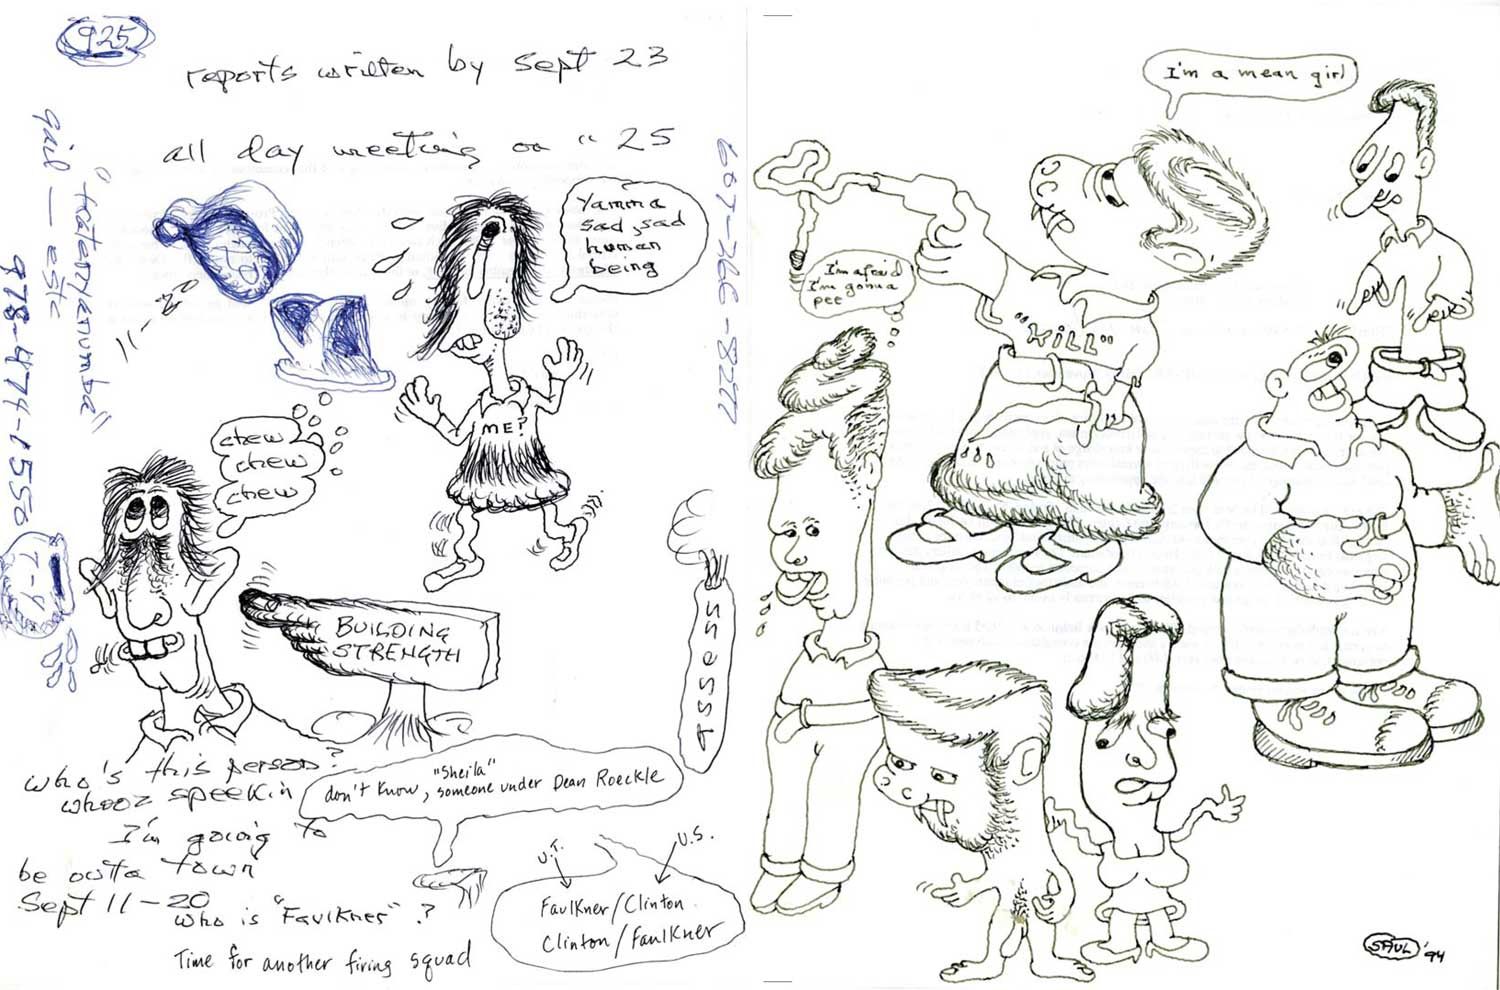 925
reports written by Sept 23
all day meeting on " 25
"trateryveriumbe"
gail — estc
978-474-1550
7-9
607-366-8277
Yamma
sad, sad
human
being
ME?
chew
chew
chew
BUILDING
STRENGTH
ASSESSS
who's this person?
whooz speekin
"Sheila"
don't know, someone under Dean Roeckle
I'm going to
be outta town
Sept 11-20
who is "Faulkner"?
Time for another firing squad
U.T.
U.S.
Faulkner/Clinton
Clinton/Faulkner
I'm a mean girl
I'm afraid
I'm gonna
pee
"KiLL"
SAUL '94